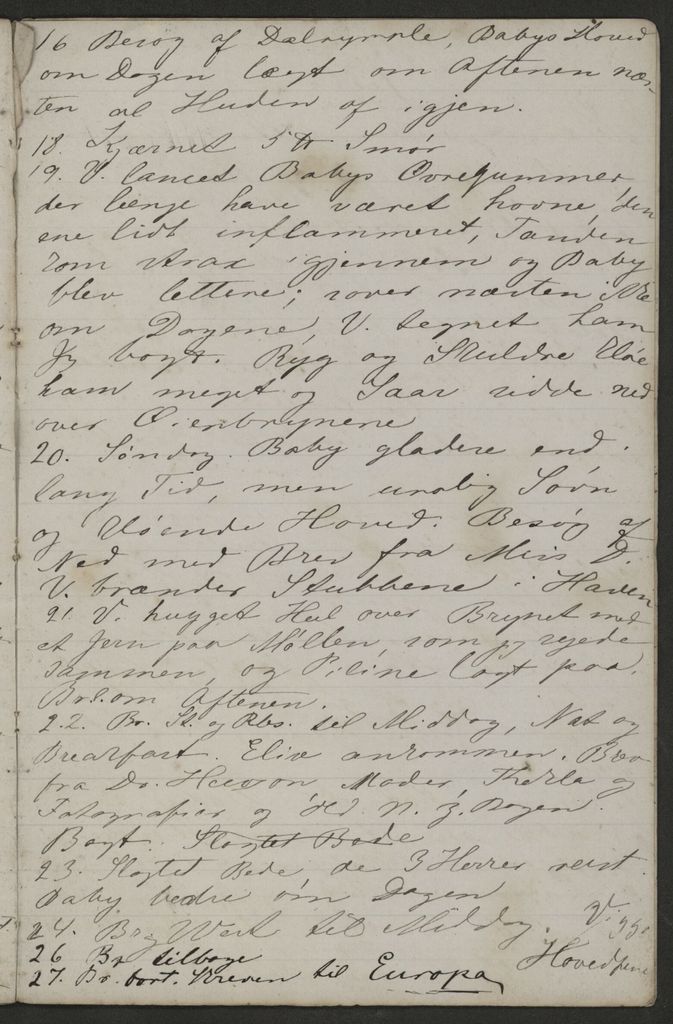 16 Besøg af Dalrymple, Babys Hoved
om Dagen lægt om Aftenen næs-
ten al Huden af igjen.
18. Kjærnet 5 ℔ Smør
19. V. lancet Babys Overgummer
der længe have været hovne, den
ene lidt inflammeret, Tanden
kom strax igjennem og Baby
blev lettere; sover næsten ikke
om Dagene, V. tegnet ham
Jg bagt. Ryg og Skuldre kløe
ham meget og Saar sidde ned
over Øienbrynene
20. Søndag. Baby gladere end i
lang Tid, men urolig Søvn
og kløende Hoved. Besøg af
Ned med Brev fra Miss D.
V. brænder Stubbene i Haven
21. V. hugget Hul over Brynet med
et Jern paa Møllen, som jg
sammen, og lagt paa.
Br. om Aftenen.
22. Br. St. og Rbs. til Middag, Nat og
Breakfast. Elix ankommen. Brev
fra Dr. Moder, Thekla og
Fotografier og N. Z. Bogen.
Bagt. Slagtet Bede
23. Slagtet Bede de 3 Herrer reist.
Baby bedre om Dagen
24. Br. West til Middag. V.
26 Br tilbage Hovedpine
27. Br. bort. Skreven til Europa